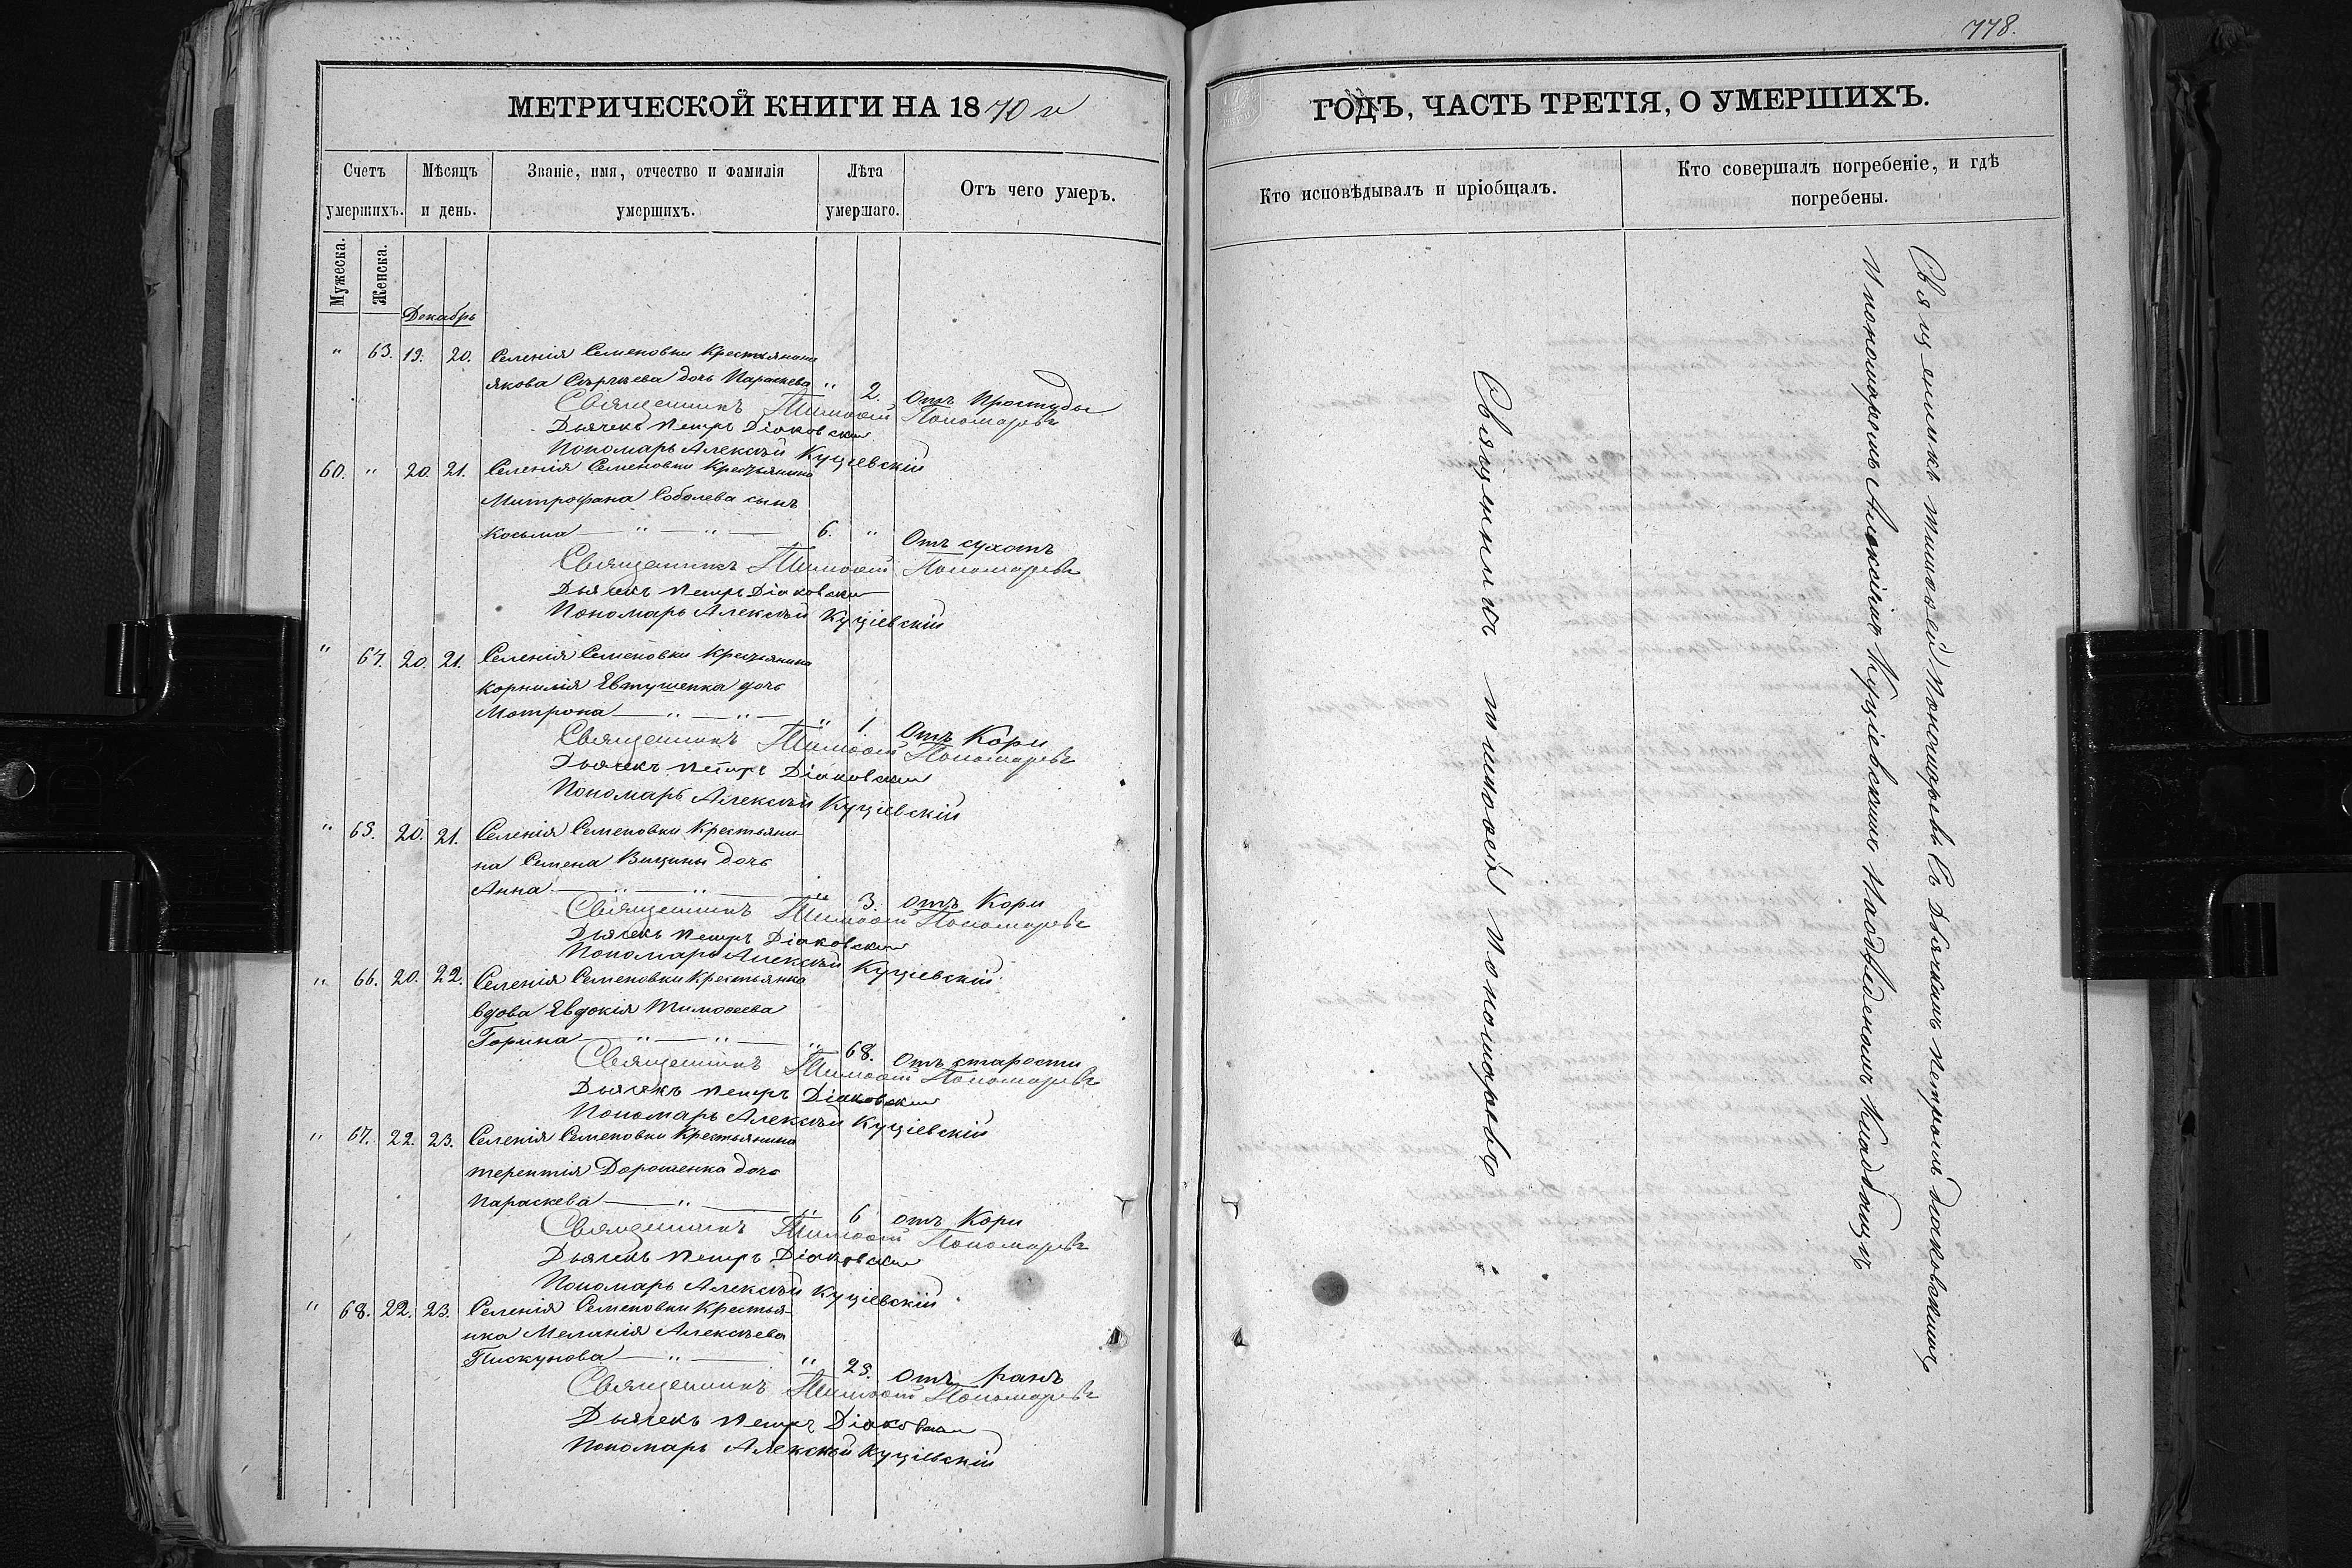 778.
МЕТРИЧЕСКОЙ КНИГИ НА 1870 й
Счетъ умершихъ.
Мѣсяцъ и день.
Званіе, имя, отчество и фамилія умершихъ.
Лѣта умершаго.
Отъ чего умеръ.
Мужеска.
Женска.
Декабрь
" 63. 19. 20. Селенія Семеновки Крестьянина
Якова Сергѣева дочь Параскева " 2. Отъ Простуды
Священникъ Тимоѳей Пономаревъ
Дьячекъ Петръ Діаковскій
Пономарь Алексѣй Куціевскій
60. " 20. 21. Селенія Семеновки Крестьянина
Митрофана Соболева сынъ
Косьма — " — " — 6. " Отъ сухотъ
Священникъ Тимоѳей Пономаревъ
Дьячекъ Петръ Діаковскій
Пономарь Алексѣй Куціевскій
" 64. 20. 21. Селенія Семеновки Крестьянина
Корнилія Евтушенка дочь
Мотрона — " — " — " 1 Отъ Кори
Священникъ Тимоѳей Пономаревъ
Дьячекъ Петръ Діаковскій
Пономарь Алексѣй Куціевскій
" 65. 20. 21. Селенія Семеновки Крестьяни-
на Семена Вицины дочь
Анна — " — " — " 3. отъ Кори
Священникъ Тимоѳей Пономаревъ
Дьячекъ Петръ Діаковскій
Пономарь Алексѣй Куціевскій
" 66. 20. 22. Селенія Семеновки Крестьянка
вдова Евдокія Тимоѳеева
Горина — " — " — " 68. Отъ старости
Священникъ Тимоѳей Пономаревъ
Дьячекъ Петръ Діаковскій
Пономарь Алексѣй Куціевскій
" 67. 22. 23. Селенія Семеновки Крестьянина
Терентія Дорошенка дочь
Параскева — " — " 6 отъ Кори
Священникъ Тимоѳей Пономаревъ
Дьячекъ Петръ Діаковскій
Пономарь Алексѣй Куціевскій
" 68. 22. 23. Селенія Семеновки Крестья-
нка Меланія Алексѣева
Пискунова — " — " 25. Отъ ранъ
Священникъ Тимоѳей Пономаревъ
Дьячекъ Петръ Діаковскій
Пономарь Алексѣй Куціевскій
ГОДЪ, ЧАСТЬ ТРЕТІЯ, О УМЕРШИХЪ.
Кто исповѣдывалъ и пріобщалъ.
Кто совершалъ погребеніе, и гдѣ
погребены.
Священникъ Тимоѳей Пономаревъ
Священникъ Тимоѳей Пономаревъ Съ Дьячкомъ Петромъ Діаковскимъ
И пономаремъ Алексѣемъ Куціевскимъ